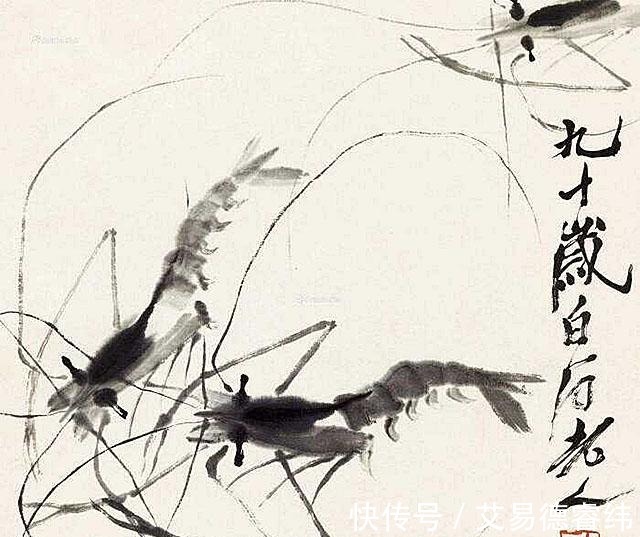 九十歲白石老人
快传号 / 艾易德睿纬